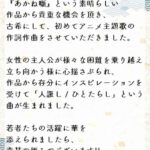 『あかね噺』という素晴らしい
作品から貴重な機会を頂き、
古巣にして、初めてアニメ主題歌の
作詞作曲をさせていただきました。
女性の主人公が様々な困難を乗り越え
立ち向かう様に心揺さぶられ、
作品から存分にインスピレーションを
受けて「人誑し / ひとたらし」という
曲が生まれました。
若者たちの活躍に華を
添えられましたら、